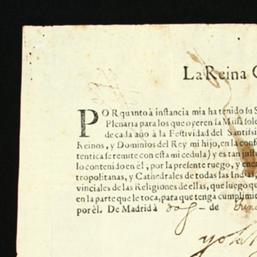 La Reina G
POR quanto à instancia mia ha tenido su S
Plenaria para los que oyeren la Missa sole
de cada año à la Festividad del Santissi
Reinos, y Dominios del Rey mi hijo, en la confo
tentica se remite con esta mi cedula) y es tan just
lo contenido en el, por la presente ruego, y enc
tropolitanas, y Cathedrales de todas las Indias,
vinciales de las Religiones de ellas, que luego qu
en la parte que le toca, para que tenga cumplimie
por èl. De Madrid à dos de
yo la